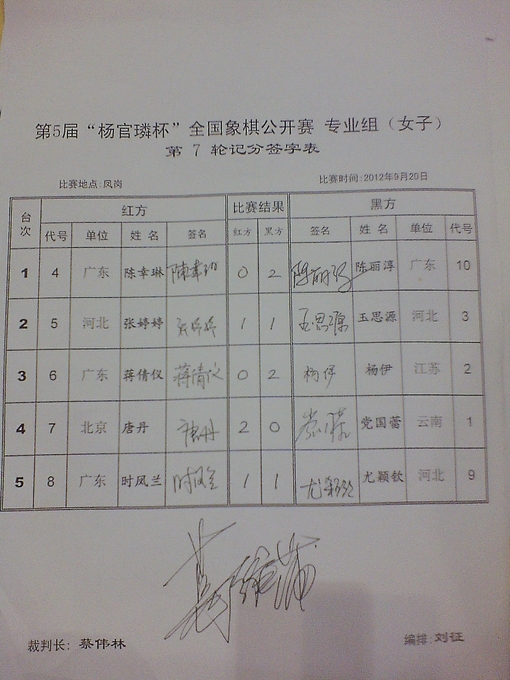 第5届“杨官璘杯”全国象棋公开赛 专业组（女子）
第 7 轮记分签字表
比赛地点:凤岗 比赛时间:2012年9月20日
台次 红方 比赛结果 黑方
代号 单位 姓名 签名 红方 黑方 签名 姓名 单位 代号
1 4 广东 陈幸琳 陳幸琳 0 2 陈丽淳 陈丽淳 广东 10
2 5 河北 张婷婷 张婷婷 1 1 玉思源 玉思源 河北 3
3 6 广东 蒋倩仪 蒋倩仪 0 2 杨伊 杨伊 江苏 2
4 7 北京 唐丹 唐丹 2 0 党国蕾 云南 1
5 8 广东 时凤兰 时凤兰 1 1 尤颖钦 尤颖钦 河北 9
裁判长: 蔡伟林 编排: 刘征